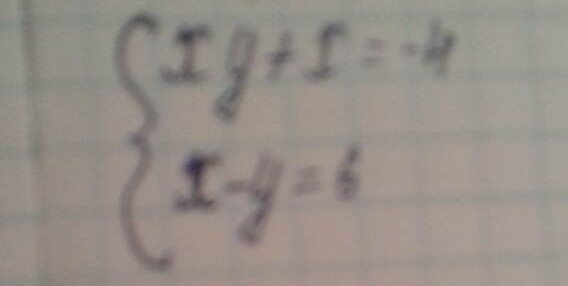 xy + x = -4
x - y = 6